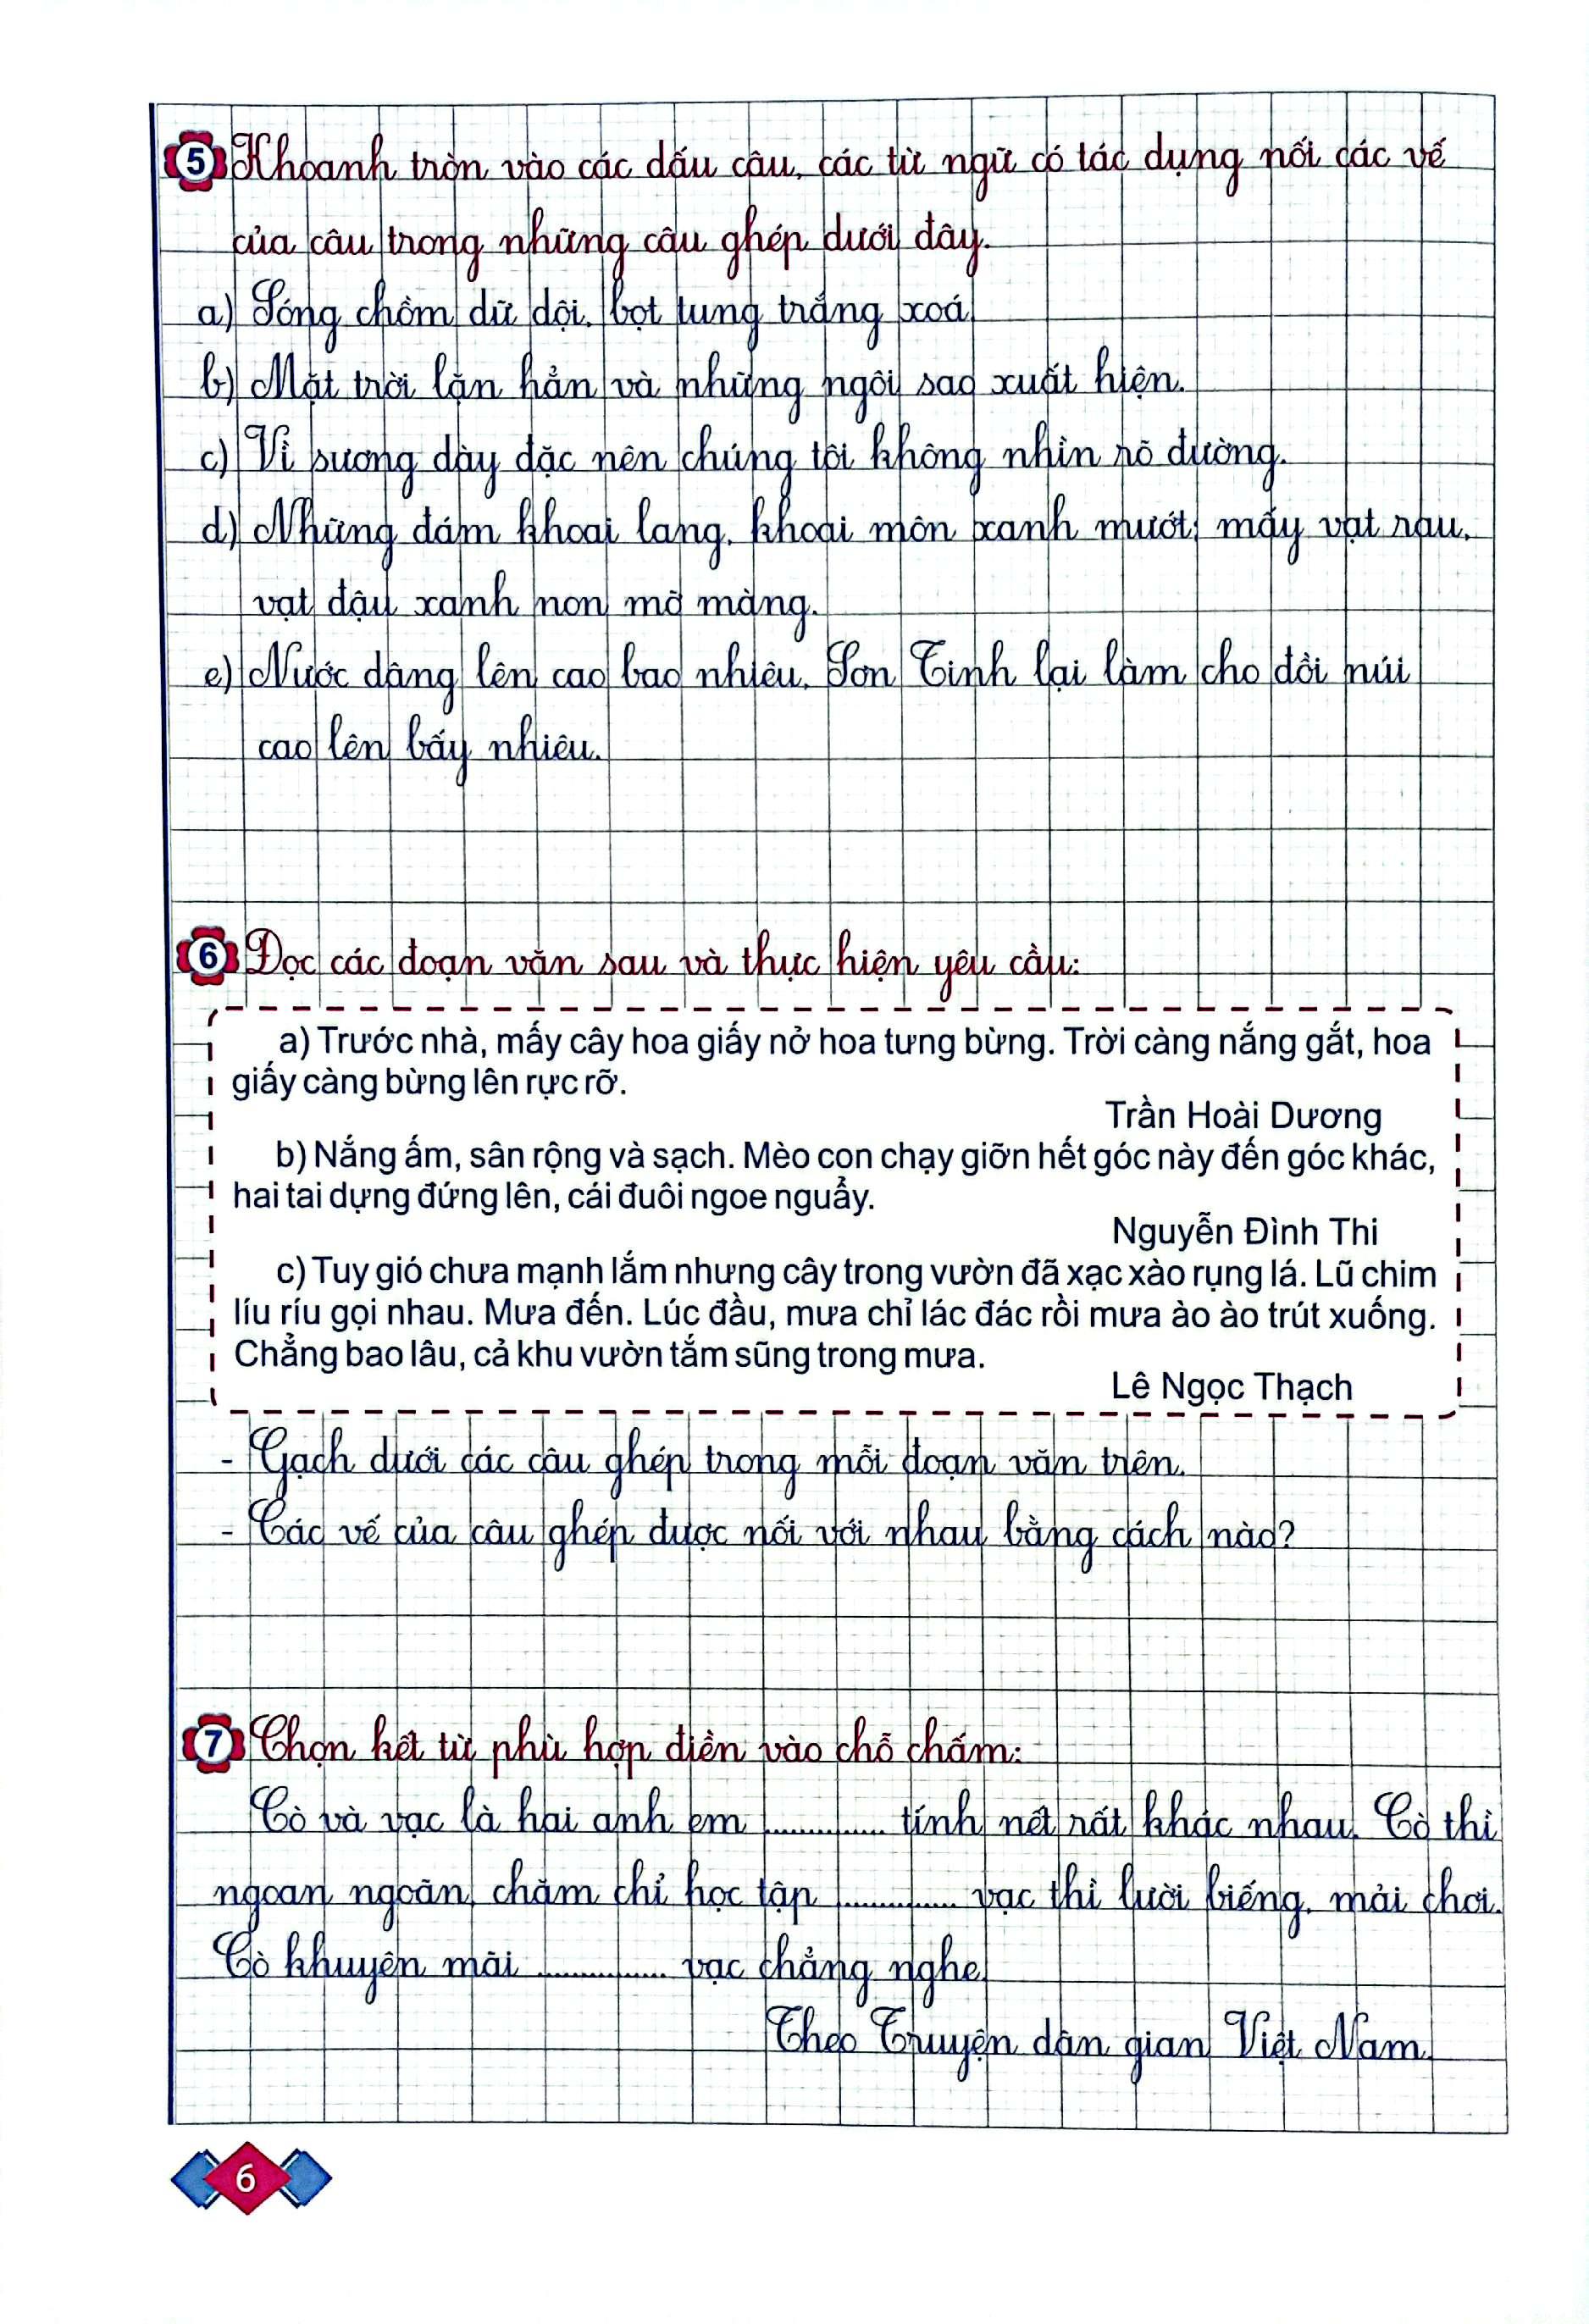 5 Khoanh tròn vào các dấu câu, các từ ngữ có tác dụng nối các vế
của câu trong những câu ghép dưới đây.
a) Sóng chồm dữ dội, bọt tung trắng xoá.
b) Mặt trời lặn hẳn và những ngôi sao xuất hiện.
c) Vì sương dày đặc nên chúng tôi không nhìn rõ đường.
d) Những đám khoai lang, khoai môn xanh mướt; mấy vạt rau,
vạt đậu xanh non mỡ màng.
e) Nước dâng lên cao bao nhiêu, Sơn Tinh lại làm cho đồi núi
cao lên bấy nhiêu.
6 Đọc các đoạn văn sau và thực hiện yêu cầu:
a) Trước nhà, mấy cây hoa giấy nở hoa tưng bừng. Trời càng nắng gắt, hoa
giấy càng bừng lên rực rỡ.
Trần Hoài Dương
b) Nắng ấm, sân rộng và sạch. Mèo con chạy giỡn hết góc này đến góc khác,
hai tai dựng đứng lên, cái đuôi ngoe nguẩy.
Nguyễn Đình Thi
c) Tuy gió chưa mạnh lắm nhưng cây trong vườn đã xạc xào rụng lá. Lũ chim
líu ríu gọi nhau. Mưa đến. Lúc đầu, mưa chỉ lác đác rồi mưa ào ào trút xuống.
Chẳng bao lâu, cả khu vườn tắm sũng trong mưa.
Lê Ngọc Thạch
- Gạch dưới các câu ghép trong mỗi đoạn văn trên.
- Các vế của câu ghép được nối với nhau bằng cách nào?
7 Chọn kết từ phù hợp điền vào chỗ chấm:
Cò và vạc là hai anh em ............ tính nết rất khác nhau. Cò thì
ngoan ngoãn, chăm chỉ học tập ............ vạc thì lười biếng, mải chơi.
Cò khuyên mãi ............ vạc chẳng nghe.
Theo Truyện dân gian Việt Nam
6